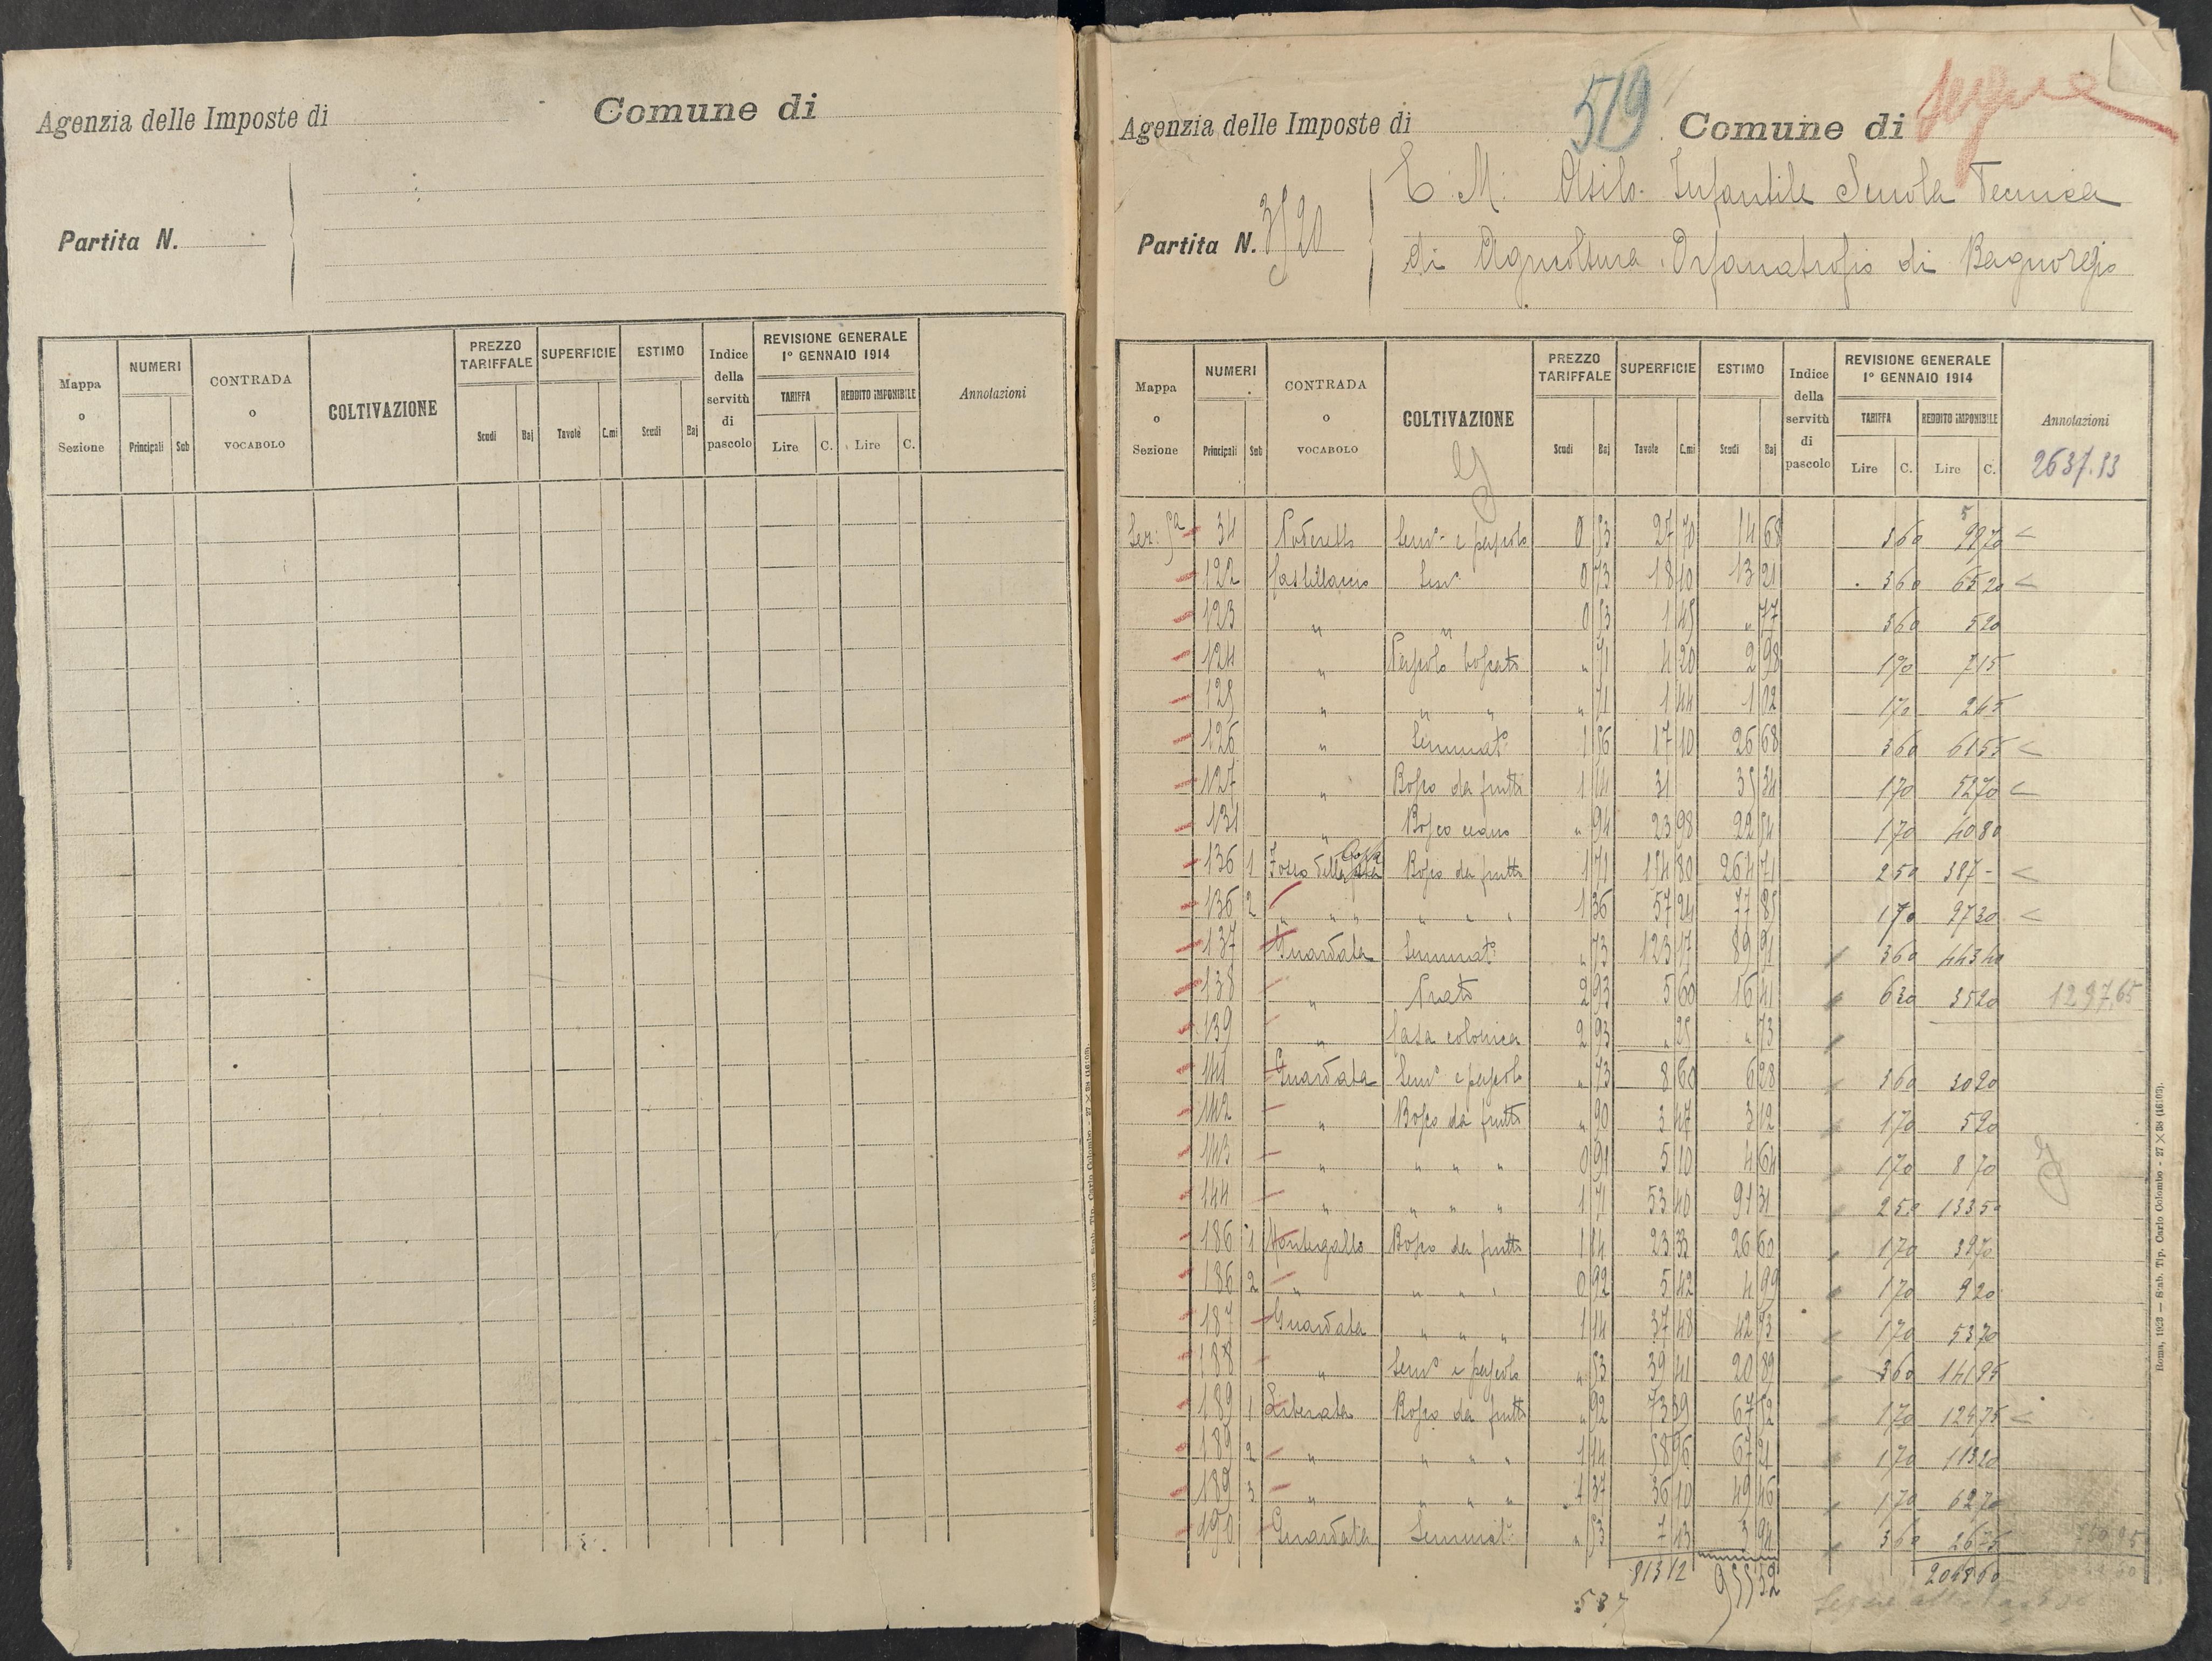 Agenzia delle Imposte di Comune di
Partita N.
Mappa o Sezione NUMERI Principali Sub CONTRADA o VOCABOLO COLTIVAZIONE PREZZO TARIFFALE Scudi Baj SUPERFICIE Tavole C.mi ESTIMO Scudi Baj Indice della servitù di pascolo REVISIONE GENERALE 1° GENNAIO 1914 TARIFFA Lire C. REDDITO IMPONIBILE Lire C. Annotazioni
519 segue
Agenzia delle Imposte di Comune di
E. M. Asilo Infantile Scuola Tecnica
Partita N. 3520 di Agricoltura Orfanatrofio di Bagnoregio
Mappa o Sezione NUMERI Principali Sub CONTRADA o VOCABOLO COLTIVAZIONE PREZZO TARIFFALE Scudi Baj SUPERFICIE Tavole C.mi ESTIMO Scudi Baj Indice della servitù di pascolo REVISIONE GENERALE 1° GENNAIO 1914 TARIFFA Lire C. REDDITO IMPONIBILE Lire C. Annotazioni
2637.13
Sez: 5a 34 Poderetto Semo e pascolo 0 53 27 70 14 68 3 60 99 70
122 Castellaccio Semo 0 73 18 10 13 21 3 60 65 20
123 " " 0 53 1 45 " 77 3 60 5 20
124 " Pascolo boscato " 71 4 20 2 98 1 70 7 15
125 " " " " 71 1 44 1 02 1 70 2 45
126 " Seminato 1 56 17 10 26 68 3 60 61 55
127 " Bosco da frutto 1 14 31 35 34 1 70 52 70
131 " Bosco ceduo " 94 23 98 22 54 1 70 40 80
136 1 Fosso della Bosco da frutto 1 71 154 80 264 71 2 50 387 -
136 2 " " " " " " 1 36 57 24 77 85 1 70 97 30
137 Guardata Seminato " 73 123 17 89 91 3 60 443 40
138 " Prato 2 93 5 60 16 41 6 30 35 20 1297,65
139 " Casa colonica 2 93 " 25 " 73
141 Guardata Semo e pascolo " 73 8 60 6 28 3 60 30 20
142 " Bosco da frutto " 90 3 47 3 12 1 70 5 90
143 " " " " 0 91 5 10 4 64 1 70 8 70
144 " " " " 1 71 53 40 91 31 2 50 133 50
186 1 Montegallo Bosco da frutto 1 14 23 33 26 60 1 70 39 70
186 2 " " " " 0 92 5 42 4 99 1 70 9 20
187 Guardata " " " 1 14 37 48 42 73 1 70 53 70
188 " Semo e pascolo " 53 39 41 20 89 3 60 141 95
189 1 Liberata Bosco da frutto " 92 73 39 67 52 1 70 124 75
189 2 " " " " 1 14 58 96 67 21 1 70 113 20
189 3 " " " " 1 37 36 10 49 46 1 70 62 70
190 Guardata Seminato " 53 7 43 3 94 3 60 26 75
813 12 955 52 2048 60
587
Roma, 1923 — Stab. Tip. Carlo Colombo - 27 × 38 (16103).